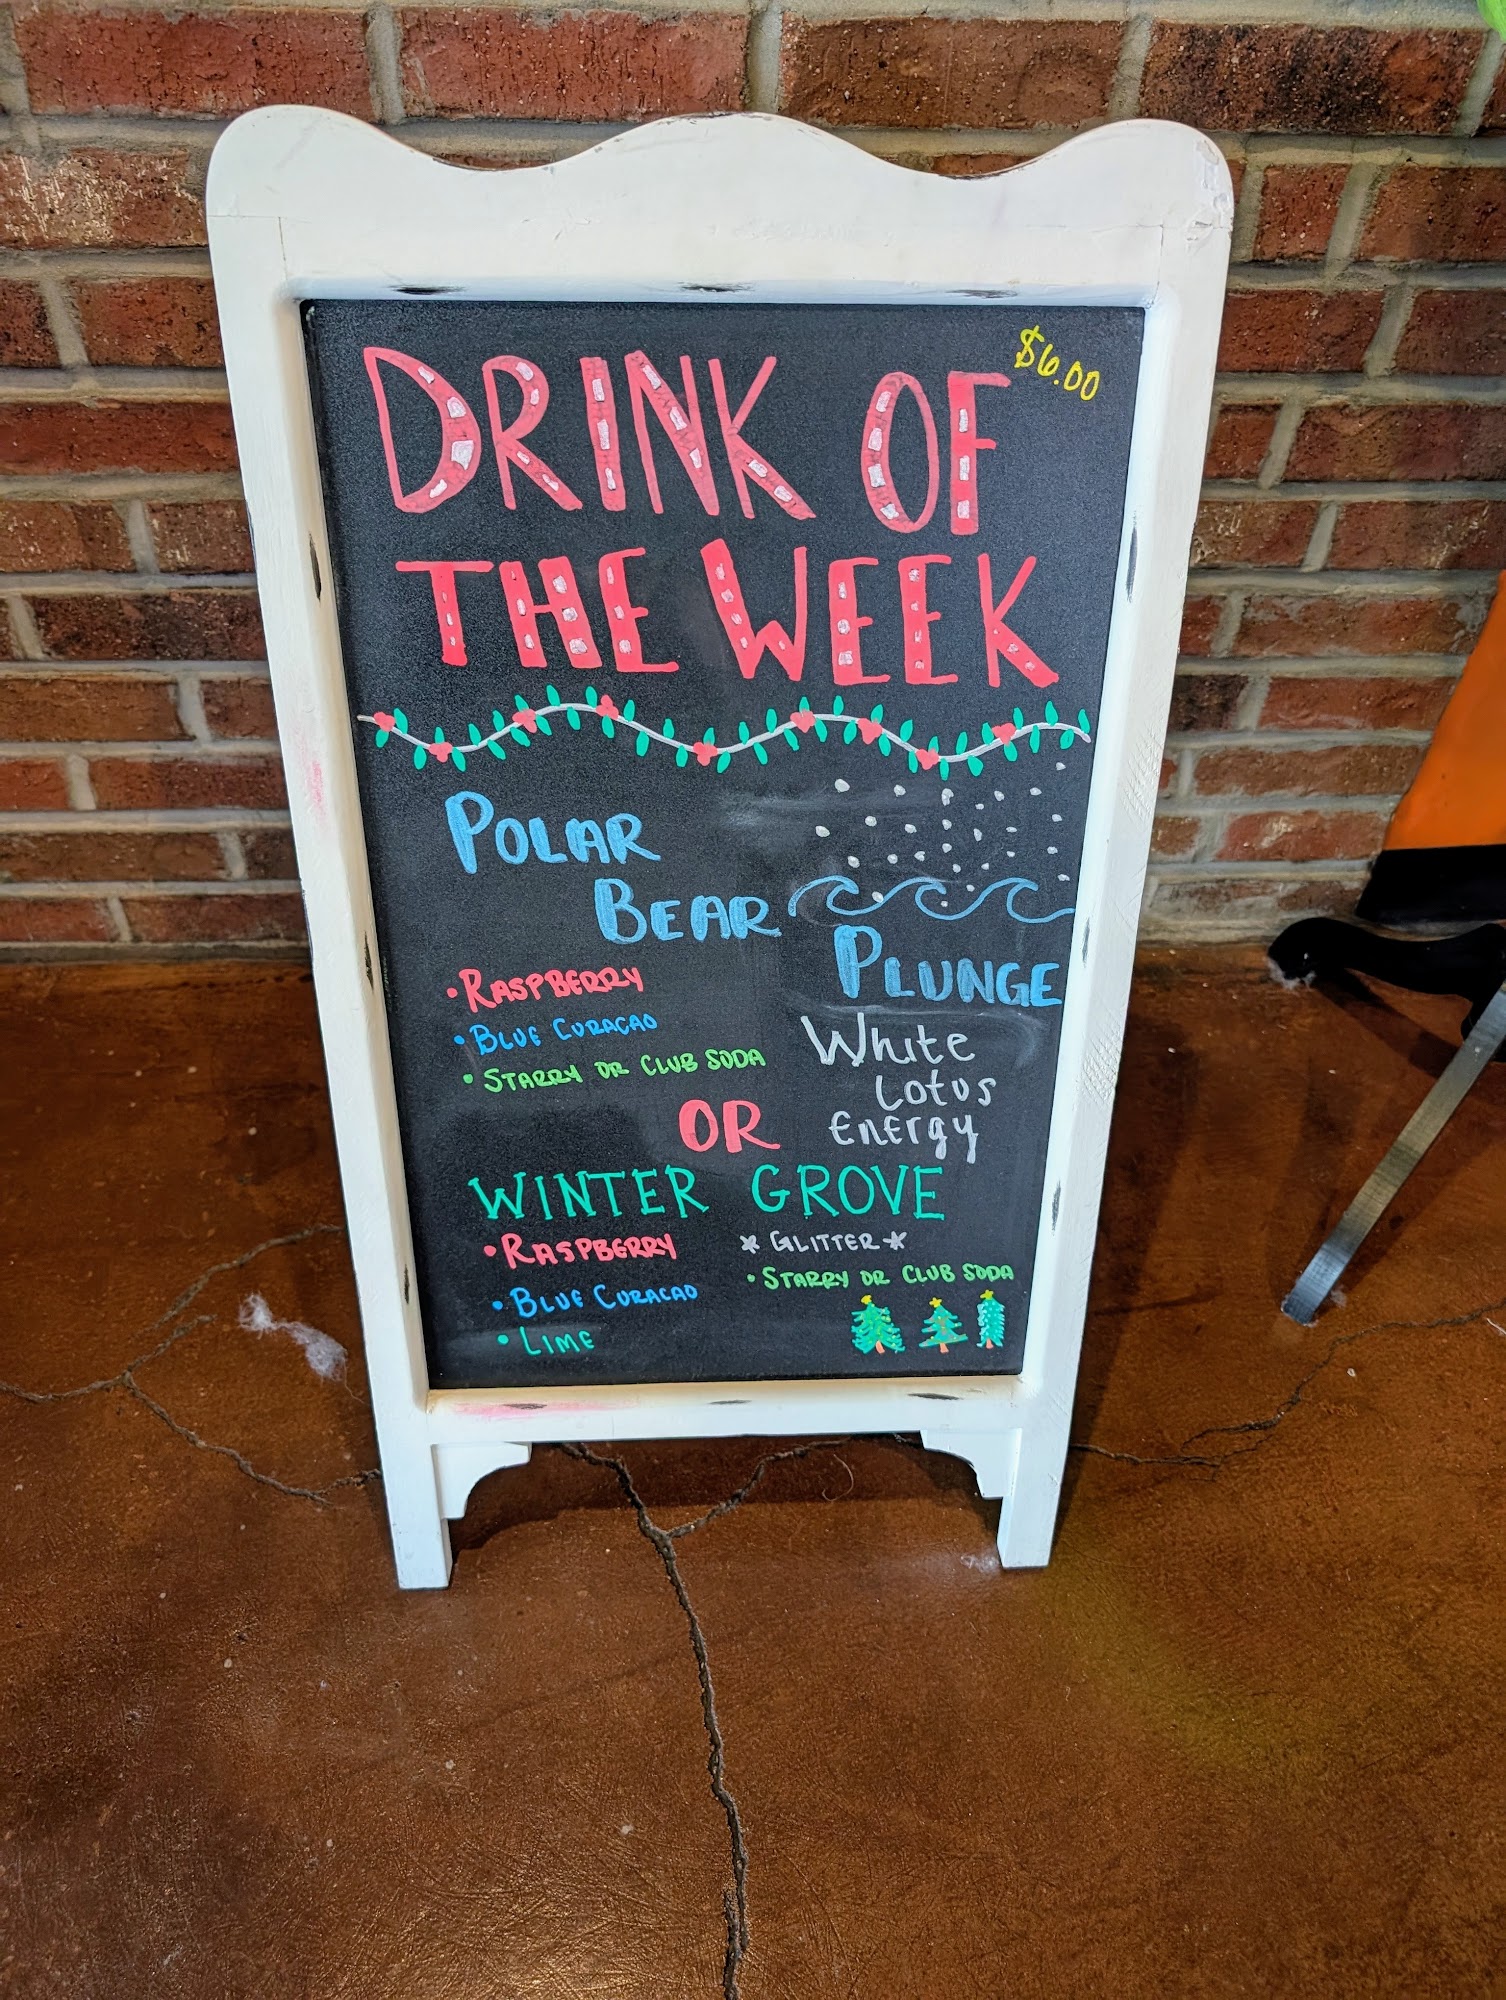 $6.00
DRINK OF
THE WEEK
POLAR
BEAR
PLUNGE
• RASPBERRY
• BLUE CURAÇAO
• STARRY OR CLUB SODA
White
Lotus
Energy
OR
WINTER GROVE
• RASPBERRY
• BLUE CURACAO
• LIME
* GLITTER *
• STARRY OR CLUB SODA